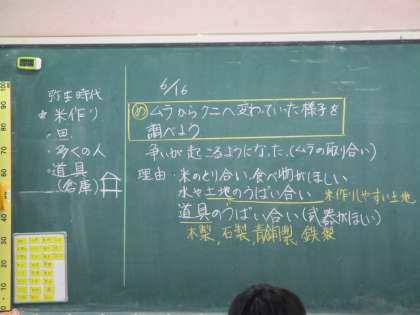 弥生時代
米作り
田
多くの人
道具
(倉庫)
6/16
め ムラからクニへ変わっていた様子を
調べよう
争いが起こるようになった。(ムラの取り合い)
理由・米のとり合い、食べ物がほしい
水や土地のうばい合い 米作りしやすい土地
道具のうばい合い(武器がほしい)
木製、石製、青銅製、鉄製